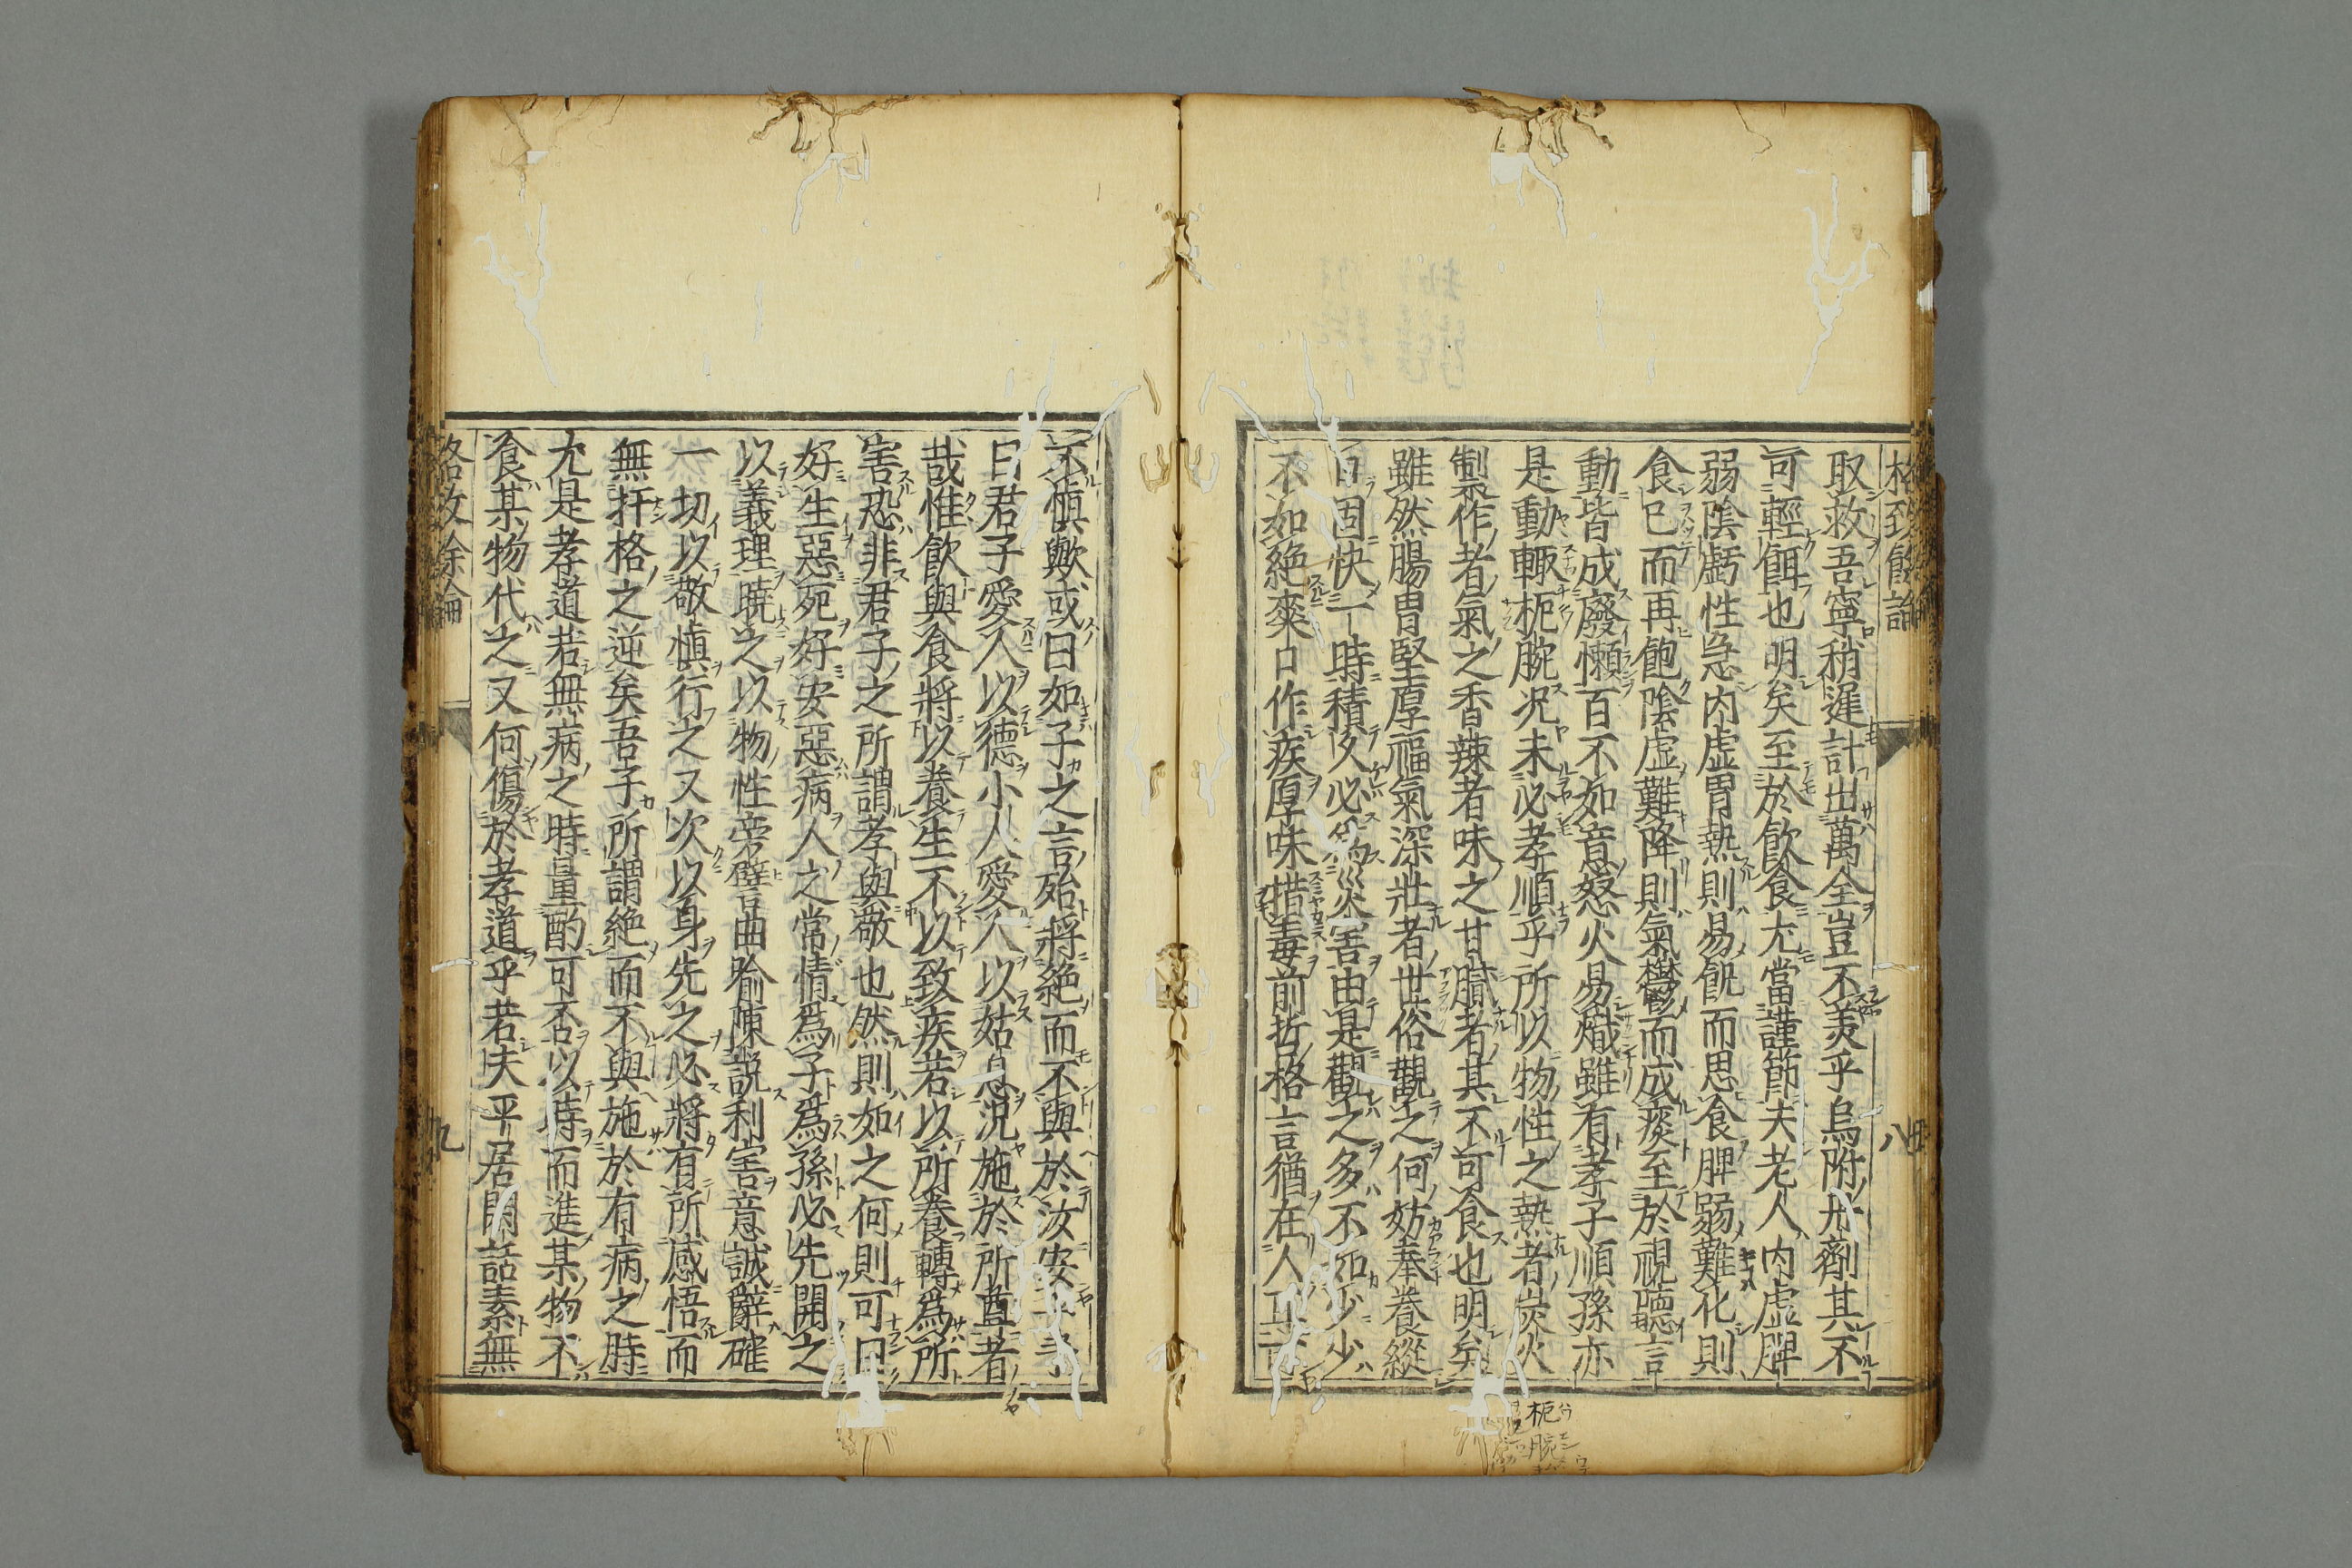 格致餘論
取救吾寧稍遲計出萬全豈不羙乎烏附丹劑其不
可輕餌也明矣至於飲食尤當謹節夫老人内虚脾
弱陰虧性急内虚胃熱則易飢而思食脾弱難化則
食已而再飽陰虚難降則氣鬱而成痰至於視聽言
動皆成廢懶百不如意怒火易熾雖有孝子順孫亦
是動輙扼腕況未必孝順乎所以物性之熱者炭火
製作者氣之香辣者味之甘膩者其不可食也明矣
雖然腸胃堅厚福氣深壯者世俗觀之何妨奉養縱
口固快一時積久必為災害由是觀之多不如少少
不如絶爽口作疾厚味措毒前哲格言猶在人耳可
八
扼腕
不慎歟或曰如子之言殆將絶而不與於汝安乎予
曰君子愛人以德小人愛人以姑息況施於所尊者
哉惟飲與食將以養生不以致疾若以所養轉爲所
害恐非君子之所謂孝與敬也然則如之何則可曰
好生惡死好安惡病人之常情爲子爲孫必先開之
以義理曉之以物性旁譬曲喻陳説利害意誠辭確
一切以敬慎行之又次以身先之必將有所感悟而
無扞格之逆矣吾子所謂絶而不與施於有病之時
尤是孝道若無病之時量酌可否以時而進某物不
食某物代之又何傷於孝道乎若夫平居閑話素無
格致餘論
九